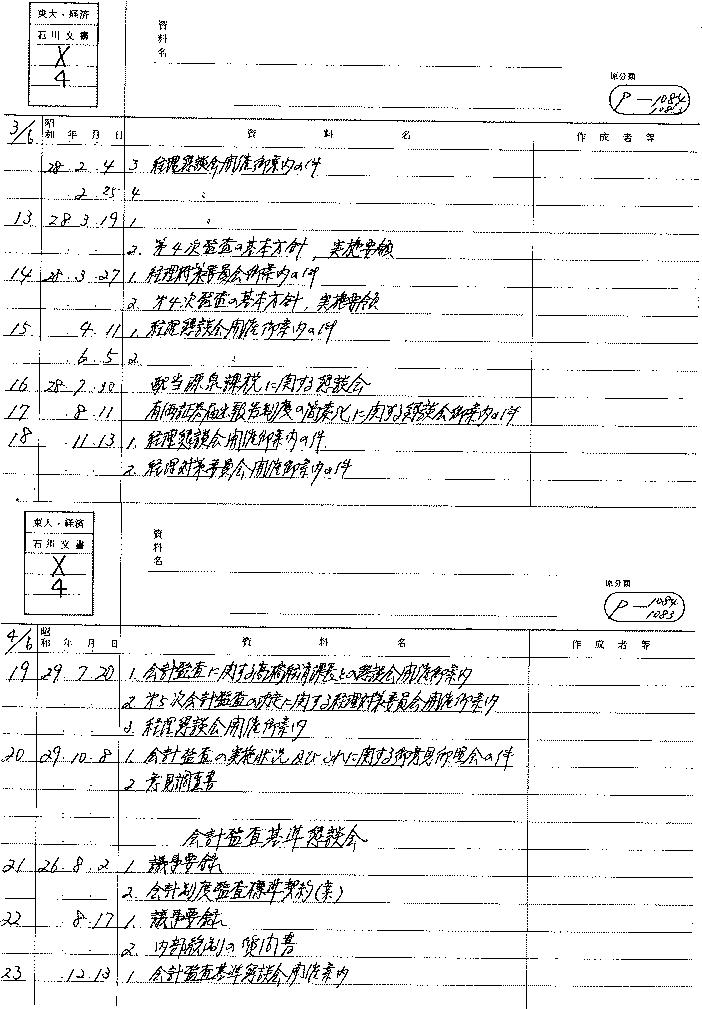 東大・経済
石川文書
X
4
資料名
原分類
P-1084
1083
3/6 昭和 年 月 日 資料名 作成者等
28 2 4 3. 経理懇談会開催御案内の件
2 25 4 〃
13 28 3 19 1. 〃
2. 第4次監査の基本方針、実施要領
14 28 3 27 1. 経理対策委員会御案内の件
2. 第4次監査の基本方針、実施要領
15 4 11 1. 経理懇談会開催御案内の件
6 5 2. 〃
16 28 7 30 配当源泉課税に関する懇談会
17 8 11 有価証券届出報告制度の簡素化に関する懇談会御案内の件
18 11 13 1. 経理懇談会開催御案内の件
2. 経理対策委員会開催御案内の件
東大・経済
石川文書
X
4
資料名
原分類
P-1084
1083
4/6 昭和 年 月 日 資料名 作成者等
19 29 7 20 1. 会計監査に関する高橋経済課長との懇談会開催御案内
2. 第5次会計監査の内定に関する経理対策委員会開催御案内
3. 経理懇談会開催御案内
20 29 10 8 1. 会計監査の実施状況及びこれに関する御意見御照会の件
2. 意見調査書
会計監査基準懇談会
21 26 8 2 1. 議事要録
2. 会計制度監査標準契約(案)
22 8 17 1. 議事要録
2. 内部統制の質問書
23 12 13 1. 会計監査基準懇談会開催案内